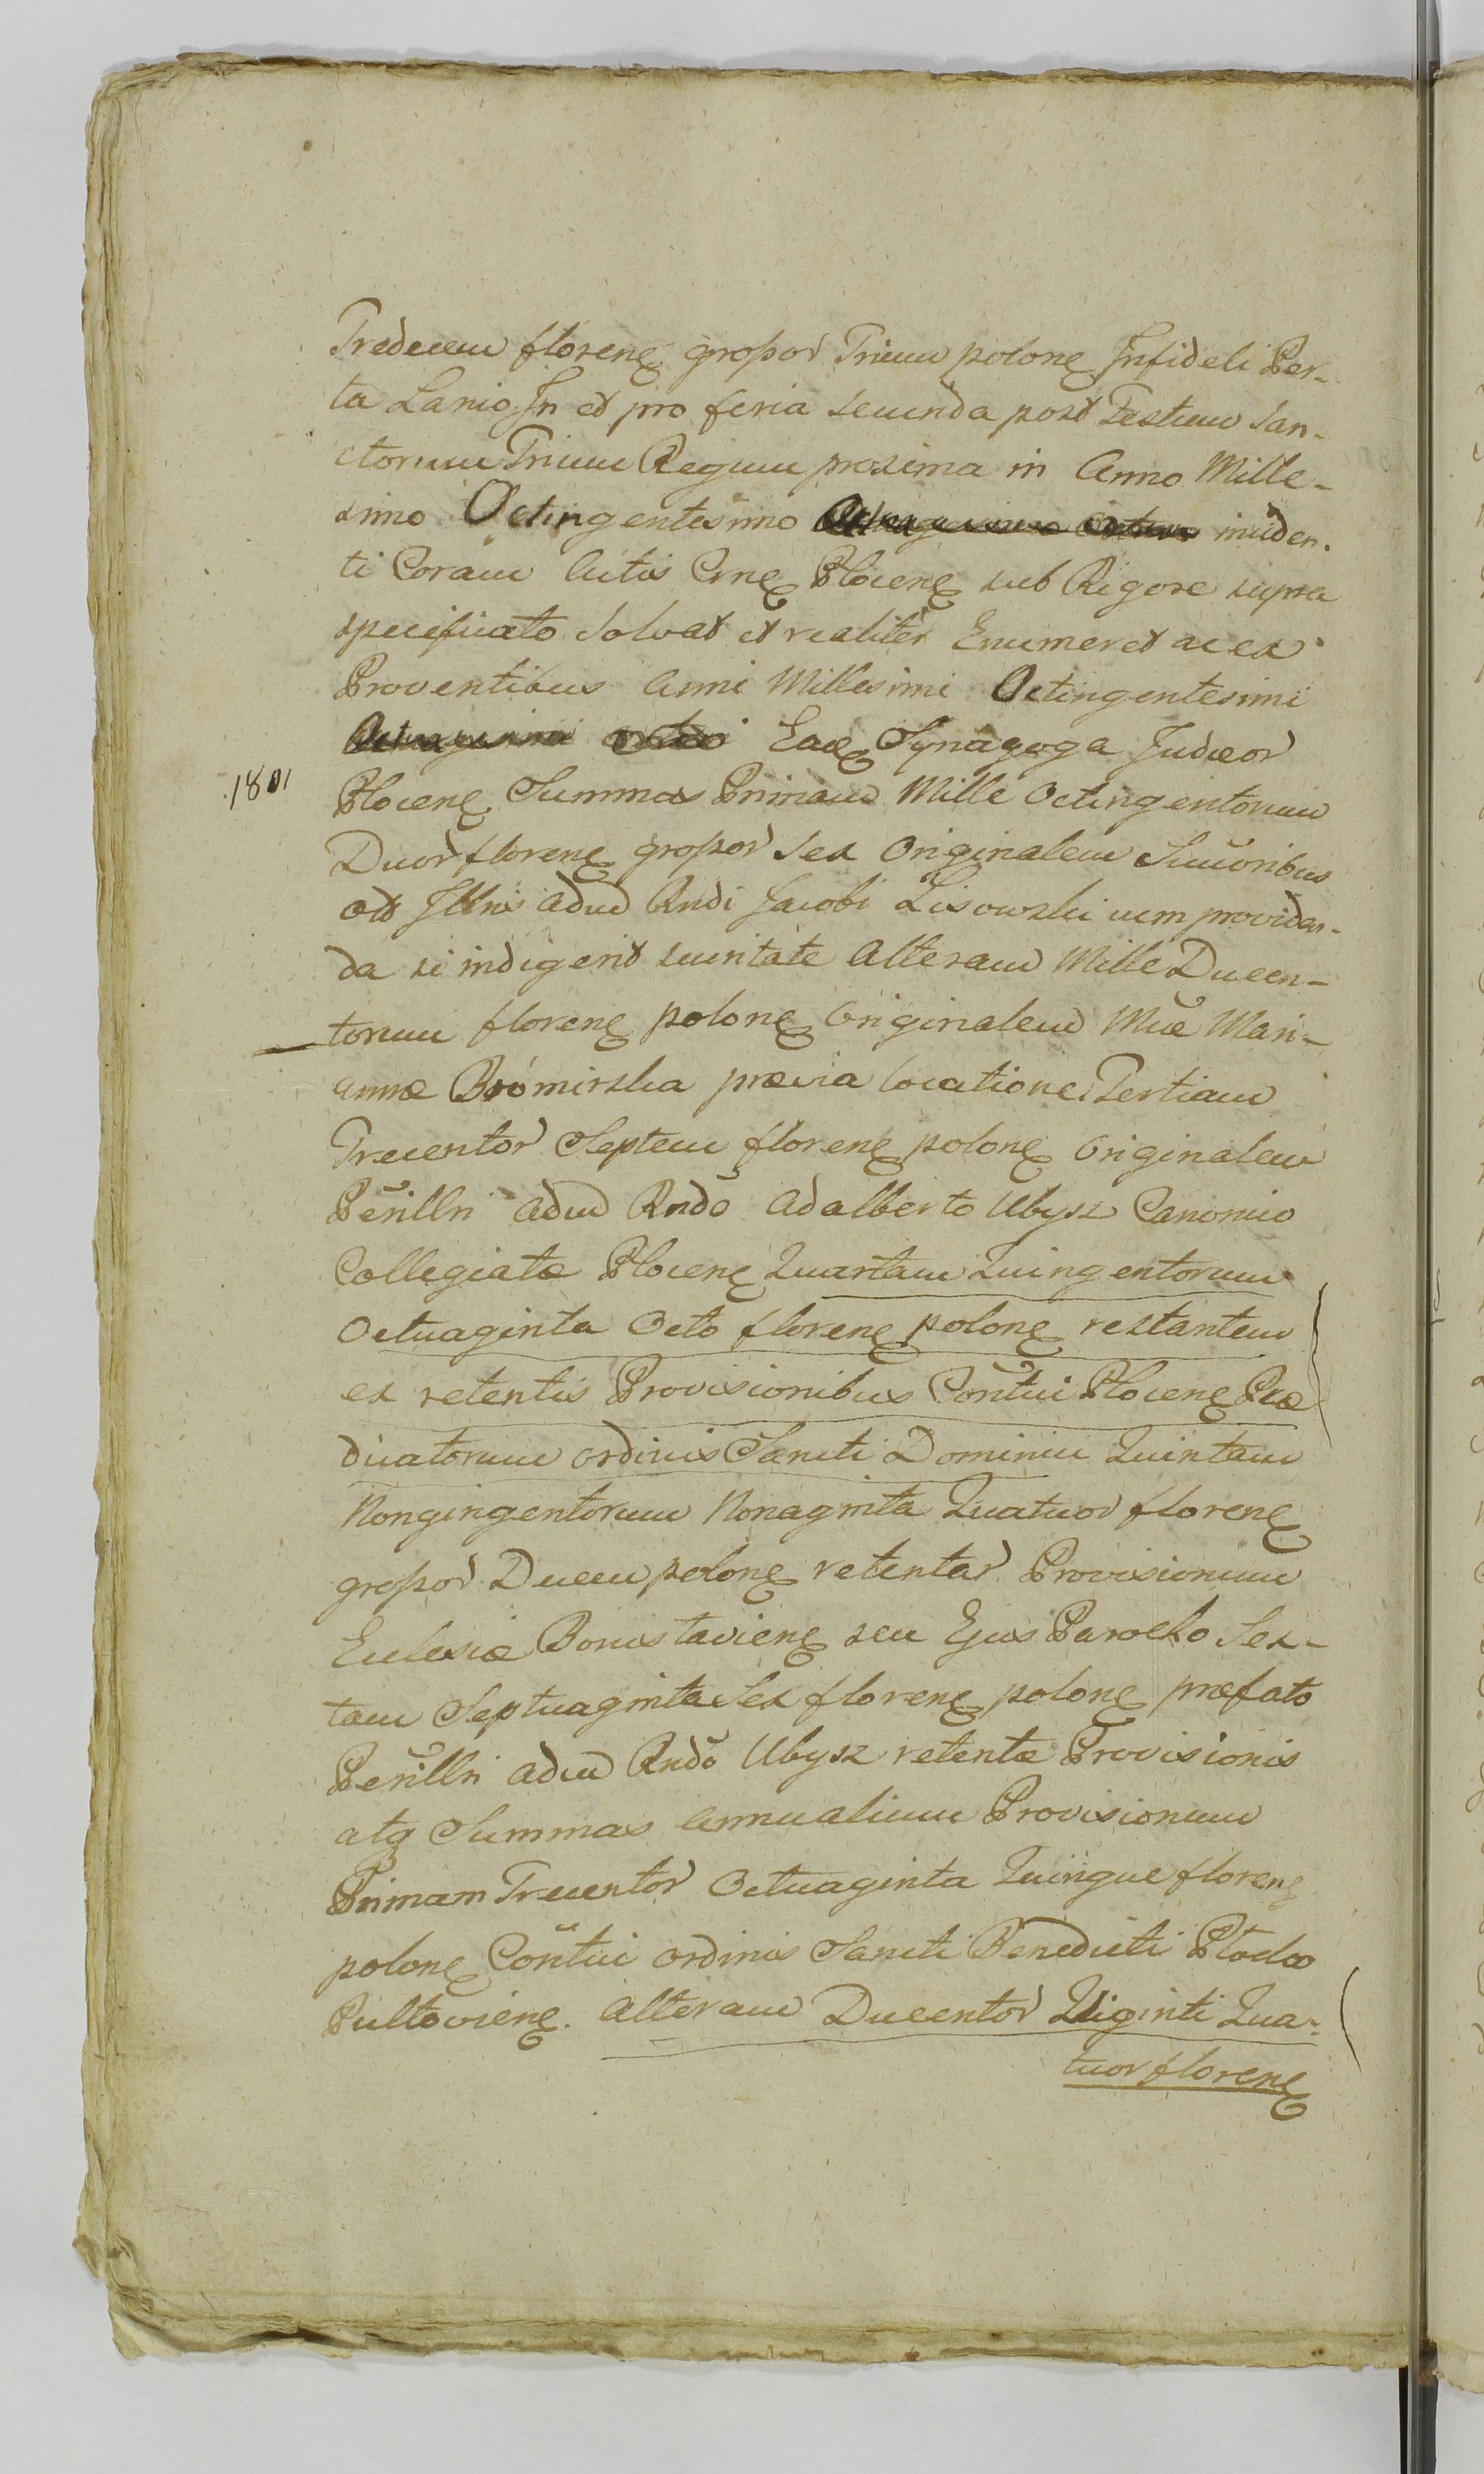 Tredecem florenę grossor Trium polonę Infideli Ber-
ta Lanio In et pro feria secunda post Festum San-
ctorum Trium Regum proxima in Anno Mille-
simo Octingentesimo inciden-
ti Coram Actis Crnę Plocenę sub Rigore supra
specificato Solvat et realiter Enumeret ac ex
Proventibus Anni Millesimi Octingentesimi
Eadę Synagoga Judæor
1801
Plocenę Summas Primam Mille Octingentorum
Duor florenę grossor Sex Originalem Succoribus
olt Illris adud Rndi Jacobi Lisowski cum providen-
da si indigerit securitate Alteram Mille Ducen-
torum florenę polonę Originalem Mcæ Mari-
annæ Brómirska prævia locatione Tertiam
Trecentor Septem florenę polonę Originalem
Perillri adud Rndo Adalberto Ubysz Canonico
Collegiatæ Plocenę Quartam Quingentorum
Octuaginta Octo florenę polonę restantem
ex retentis Provisionibus Contui Plocenę Præ
dicatorum ordinis Sancti Dominici Quintam
Nongingentorum Nonaginta Quatuor florenę
grossor Decem polonę retentar Provisionum
Eclesiæ Bonislavienę seu Ejus Parocho Sex-
tam Septuaginta Sex florenę polonę præfato
Perillri adud Rndo Ubysz retentæ Provisionis
atq Summas Annualium Provisionum
Primam Trecentor Octuaginta Quinque florenę
polonę Contui ordinis Sancti Benedicti Plocko
Pultovienę. Alteram Ducentor Viginti Qua-
tuor florenę